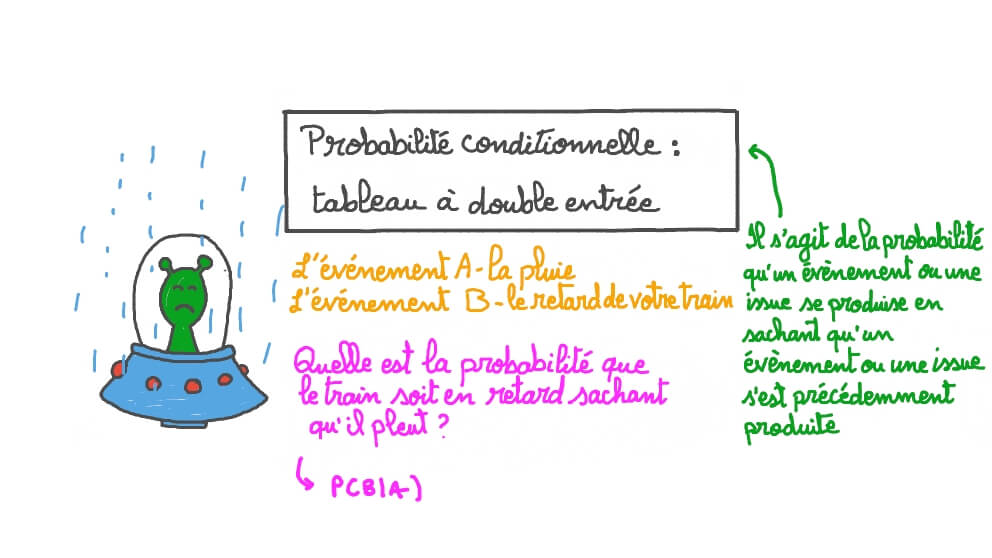 Probabilité conditionnelle :
tableau à double entrée
L'événement A - la pluie
L'événement B - le retard de votre train
Quelle est la probabilité que
le train soit en retard sachant
qu'il pleut ?
P(B|A)
Il s'agit de la probabilité
qu'un évènement ou une
issue se produise en
sachant qu'un
évènement ou une issue
s'est précédemment
produite